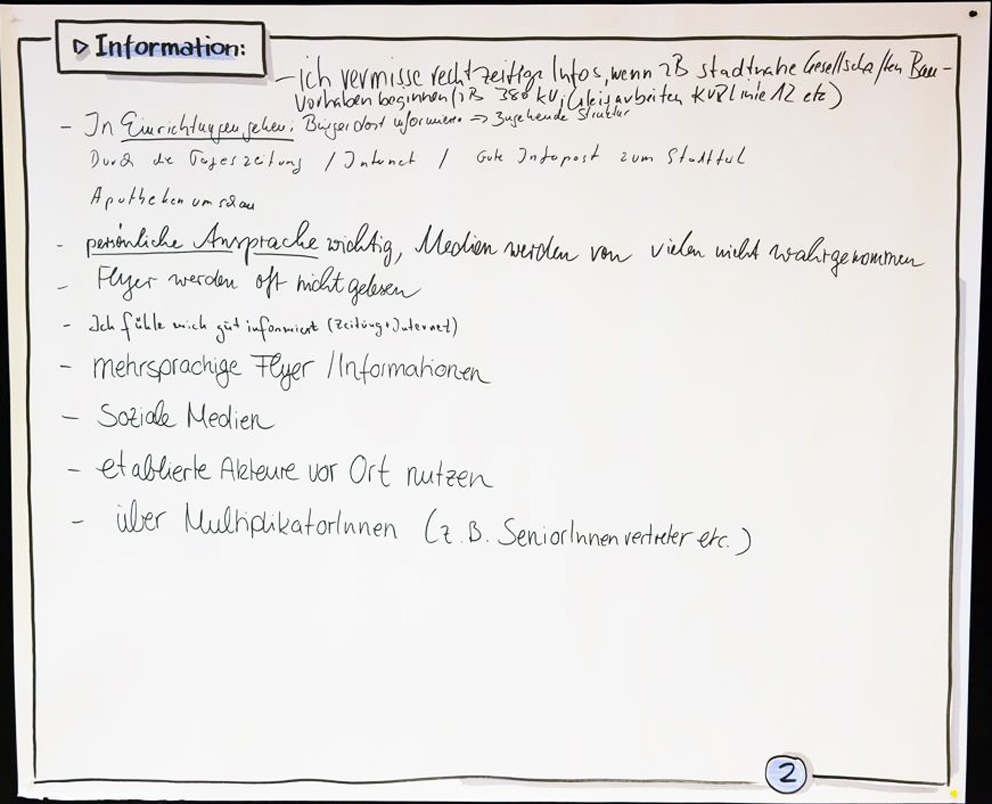 ▷ Information:
– ich vermisse rechtzeitige Infos, wenn zB stadtnahe Gesellschaften Bau-
vorhaben beginnen (zB 380 kV, Gleisarbeiten KVB Linie 12 etc)
– In Einrichtungen gehen: Bürger dort informieren => zugehende Struktur
Durch die Tageszeitung / Internet / Gute Infopost zum Stadtteil
Apotheken umschau
- persönliche Ansprache wichtig, Medien werden von vielen nicht wahrgenommen
- Flyer werden oft nicht gelesen
- Ich fühle mich gut informiert (Zeitung + Internet)
- mehrsprachige Flyer / Informationen
– Soziale Medien
- etablierte Akteure vor Ort nutzen
- über MultiplikatorInnen (z.B. SeniorInnenvertreter etc.)
2